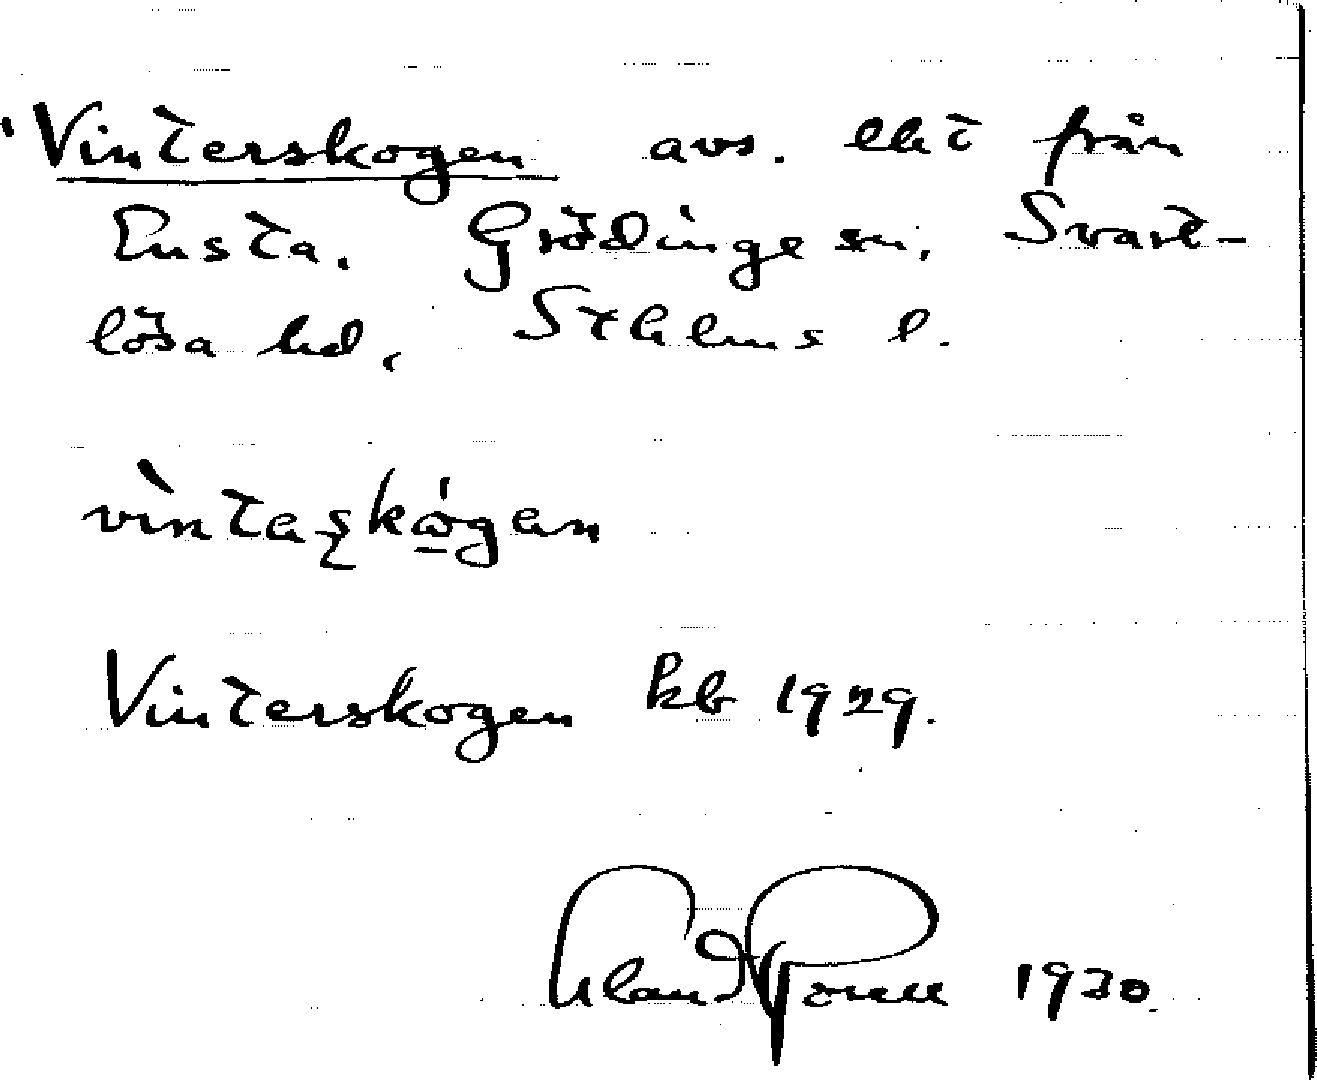 'Vinterskogen avs. lht från
Ensta. Grödinge sn, Svart-
lösa hd, Sthlms l.
vìntaşkǿgan
Vinterskogen kb 1929.
1930